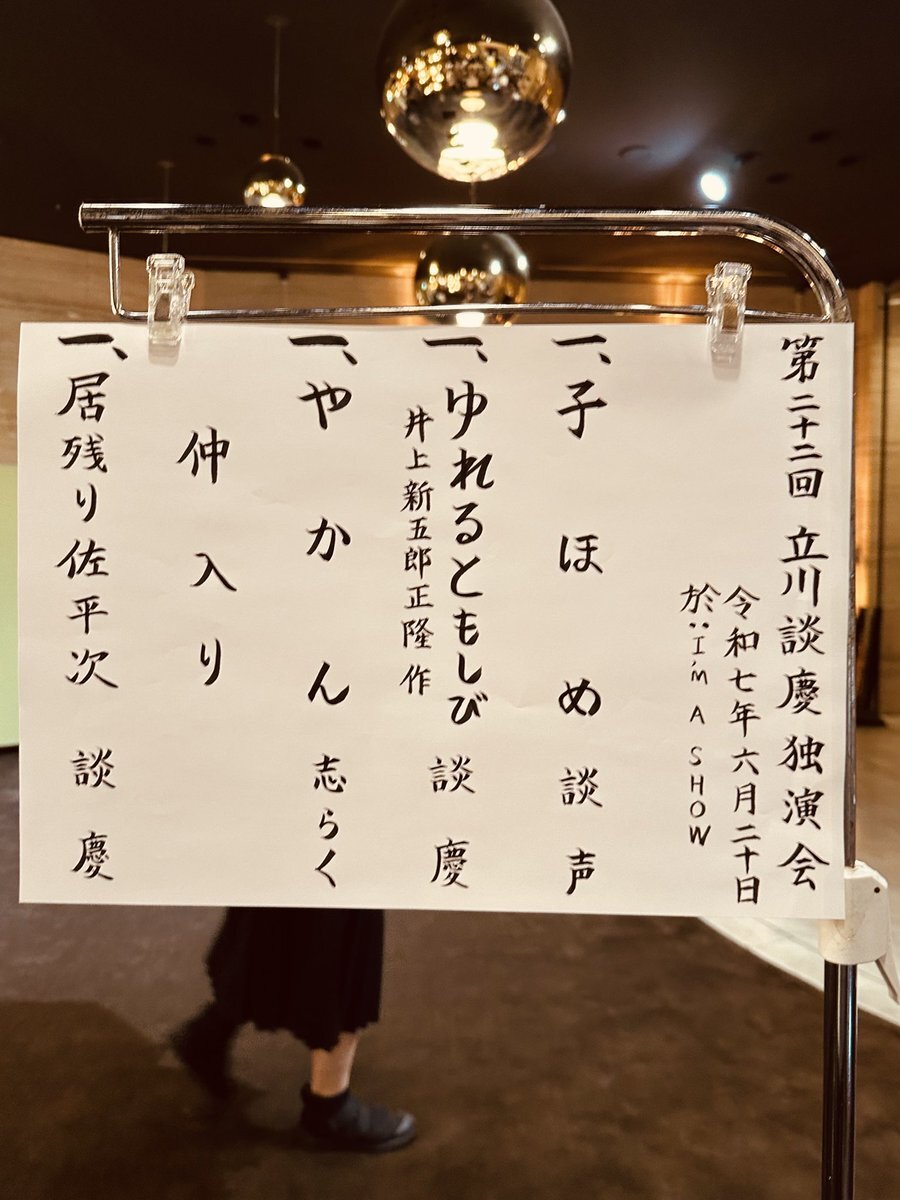 第二十二回 立川談慶独演会
令和七年六月二十日
於:I'm A SHOW
一、子ほめ 談声
一、ゆれるともしび 談慶
井上新五郎正隆 作
一、やかん 志らく
仲入り
一、居残り佐平次 談慶